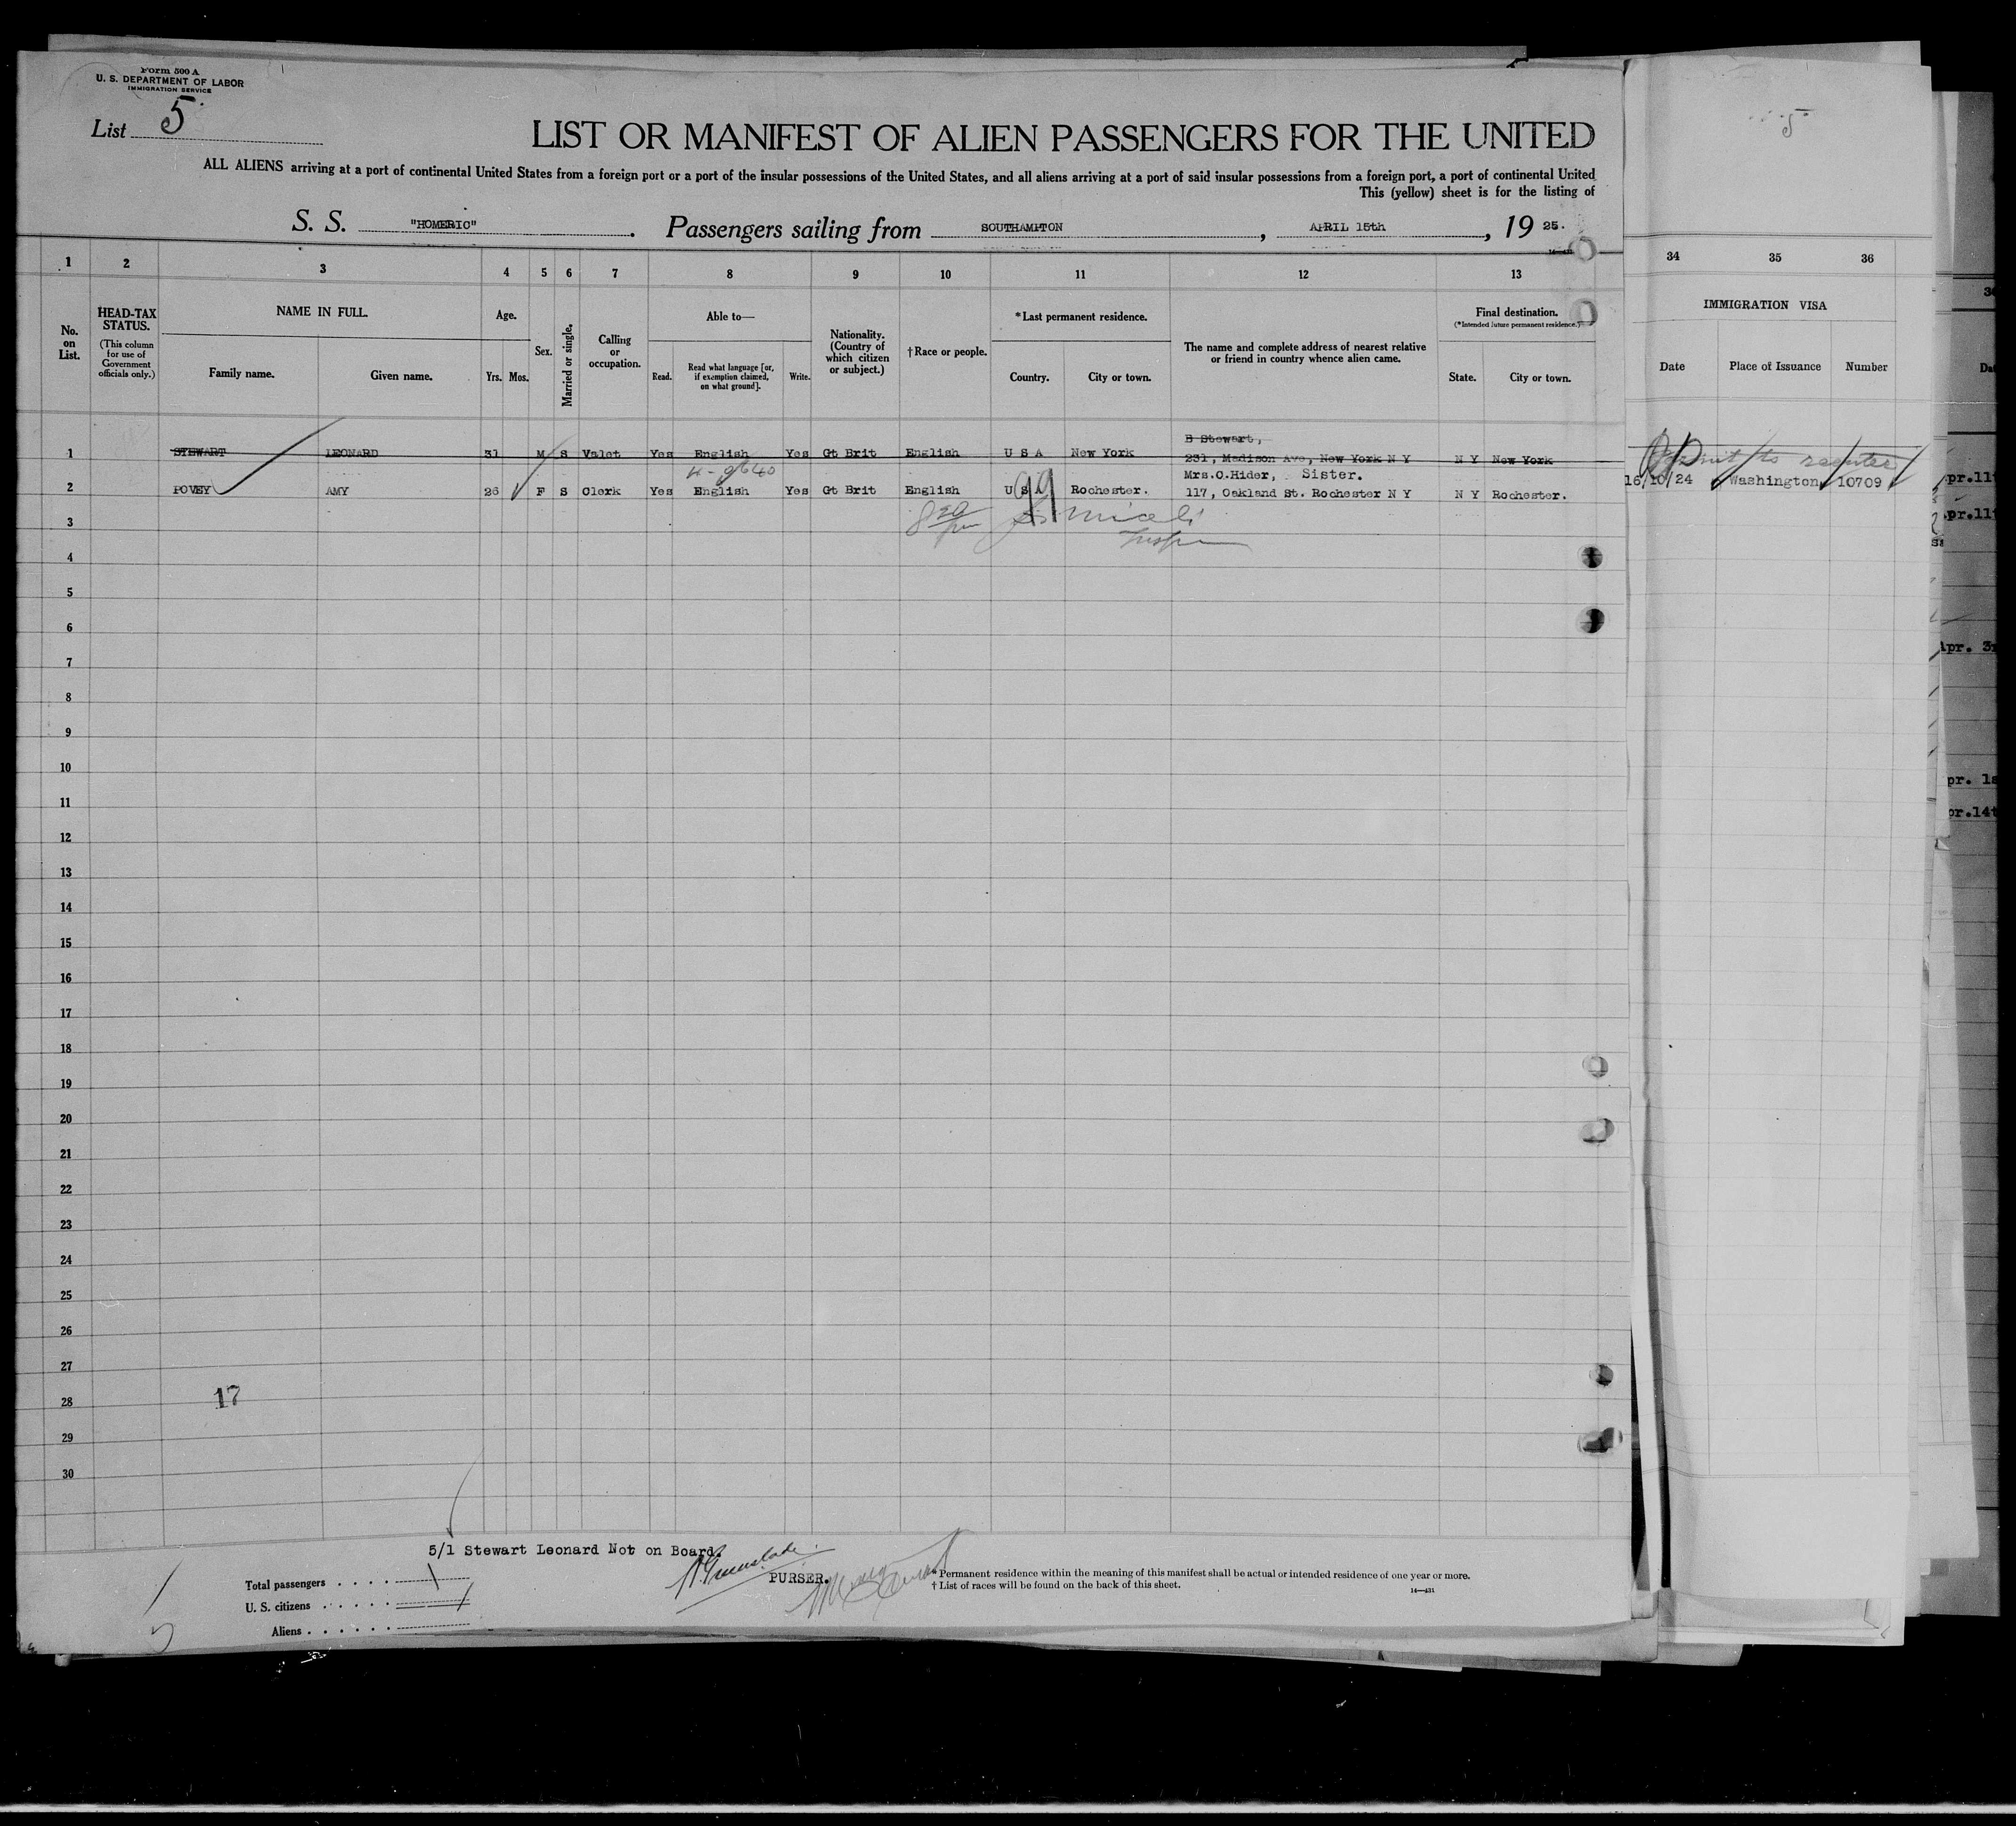 Form 500 A
U. S. DEPARTMENT OF LABOR
IMMIGRATION SERVICE
List 5
LIST OR MANIFEST OF ALIEN PASSENGERS FOR THE UNITED
ALL ALIENS arriving at a port of continental United States from a foreign port or a port of the insular possessions of the United States, and all aliens arriving at a port of said insular possessions from a foreign port, a port of continental United
This (yellow) sheet is for the listing of
S. S. "HOMERIC". Passengers sailing from SOUTHAMPTON, APRIL 15th, 19 25.
1 2 3 4 5 6 7 8 9 10 11 12 13
No. on List.
HEAD-TAX STATUS.
(This column for use of Government officials only.)
NAME IN FULL.
Family name. Given name.
Age.
Yrs. Mos.
Sex.
Married or single.
Calling or occupation.
Able to—
Read. Read what language [or, if exemption claimed, on what ground]. Write.
Nationality. (Country of which citizen or subject.)
†Race or people.
*Last permanent residence.
Country. City or town.
The name and complete address of nearest relative or friend in country whence alien came.
Final destination.
(*Intended future permanent residence.)
State. City or town.
34 35 36
IMMIGRATION VISA
Date Place of Issuance Number
B Stewart,
1 STEWART LEONARD 31 M S Valet Yes English Yes Gt Brit English U S A New York 231, Madison Ave, New York N Y N Y New York
Mrs.C.Hider, Sister.
2 POVEY AMY 26 F S Clerk Yes English Yes Gt Brit English U S A Rochester. 117, Oakland St. Rochester N Y N Y Rochester.
16/10/24 Washington 10709
3
4
5
6
7
8
9
10
11
12
13
14
15
16
17
18
19
20
21
22
23
24
25
26
27
28
17
29
30
5/1 Stewart Leonard Not on Board.
PURSER.
Total passengers
U. S. citizens
Aliens
*Permanent residence within the meaning of this manifest shall be actual or intended residence of one year or more.
†List of races will be found on the back of this sheet.
14—431